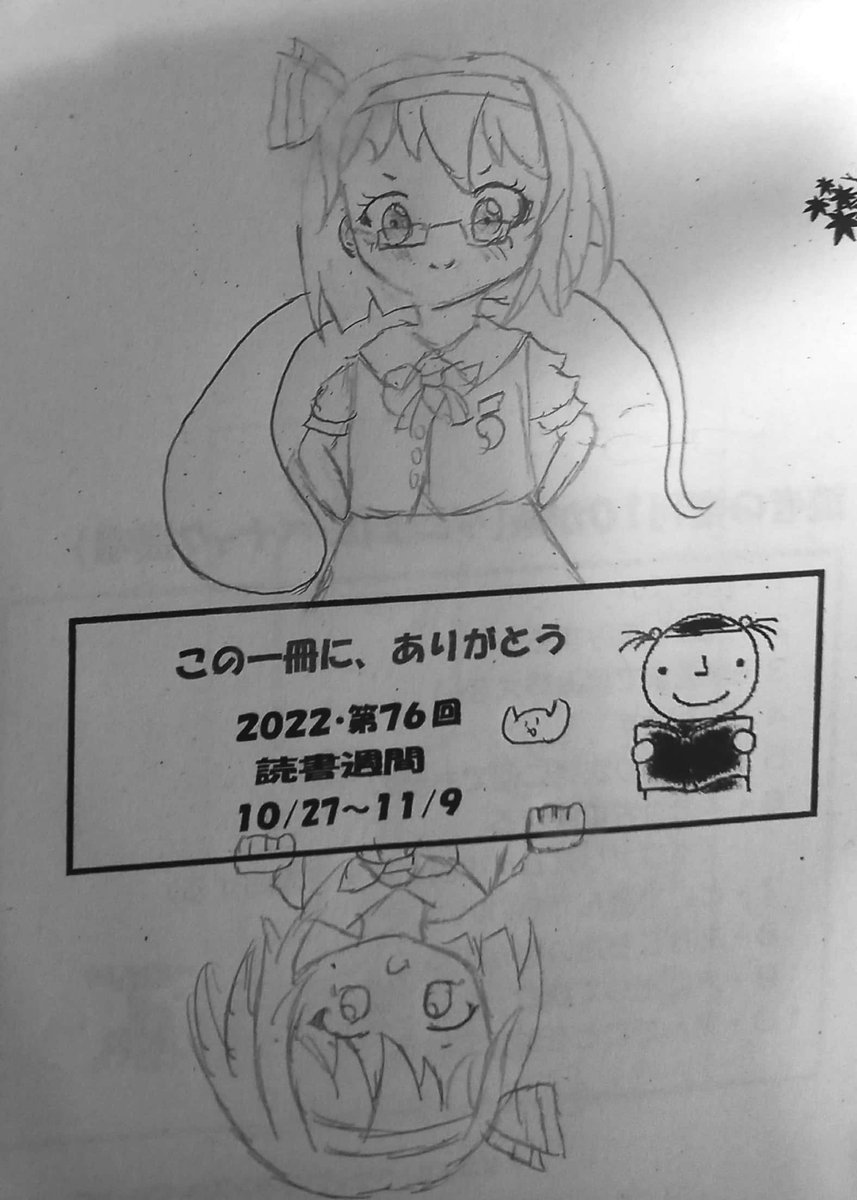 この一冊に、ありがとう
2022・第76回
読書週間
10/27～11/9